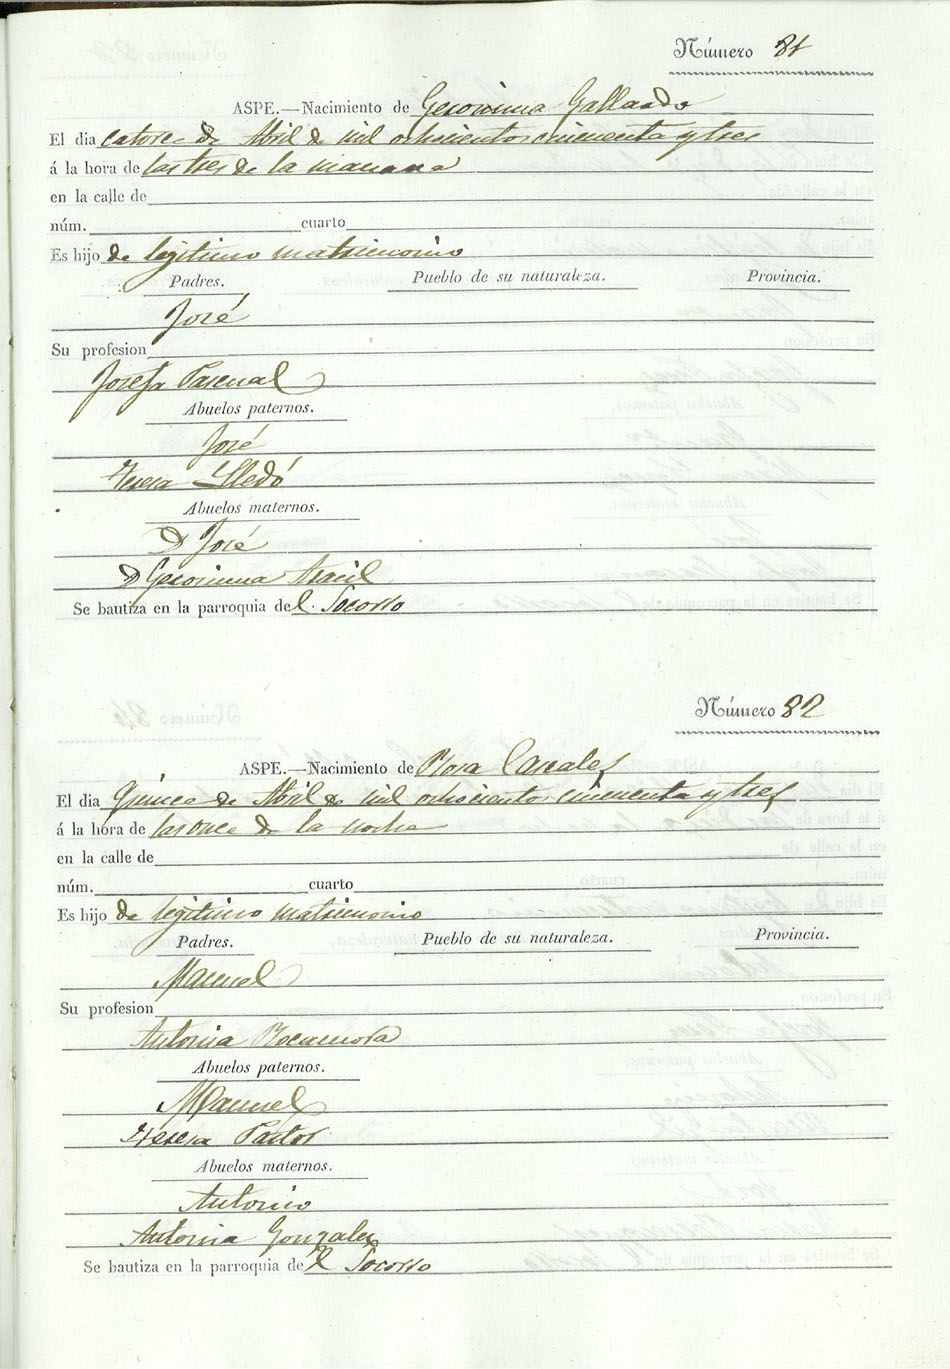 Número 81
ASPE.—Nacimiento de Geronima Gallardo
El dia catorce de Abril de mil ochocientos cincuenta y tres
á la hora de las tres de la manana
en la calle de
núm. cuarto
Es hijo de legitimo matrimonio
Padres. Pueblo de su naturaleza. Provincia.
José
Su profesion
Josefa Pascual
Abuelos paternos.
José
Teresa Lledó
Abuelos maternos.
D José
D Geronima Asacil
Se bautiza en la parroquia del Socorro
Número 82
ASPE.—Nacimiento de Rosa Canales
El dia Quince de Abril de mil ochocientos cincuenta y tres
á la hora de las once de la noche
en la calle de
núm. cuarto
Es hijo de legitimo matrimonio
Padres. Pueblo de su naturaleza. Provincia.
Manuel
Su profesion
Antonia Rocamora
Abuelos paternos.
Manuel
Teresa Pastor
Abuelos maternos.
Antonio
Antonia Gonzales
Se bautiza en la parroquia del Socorro